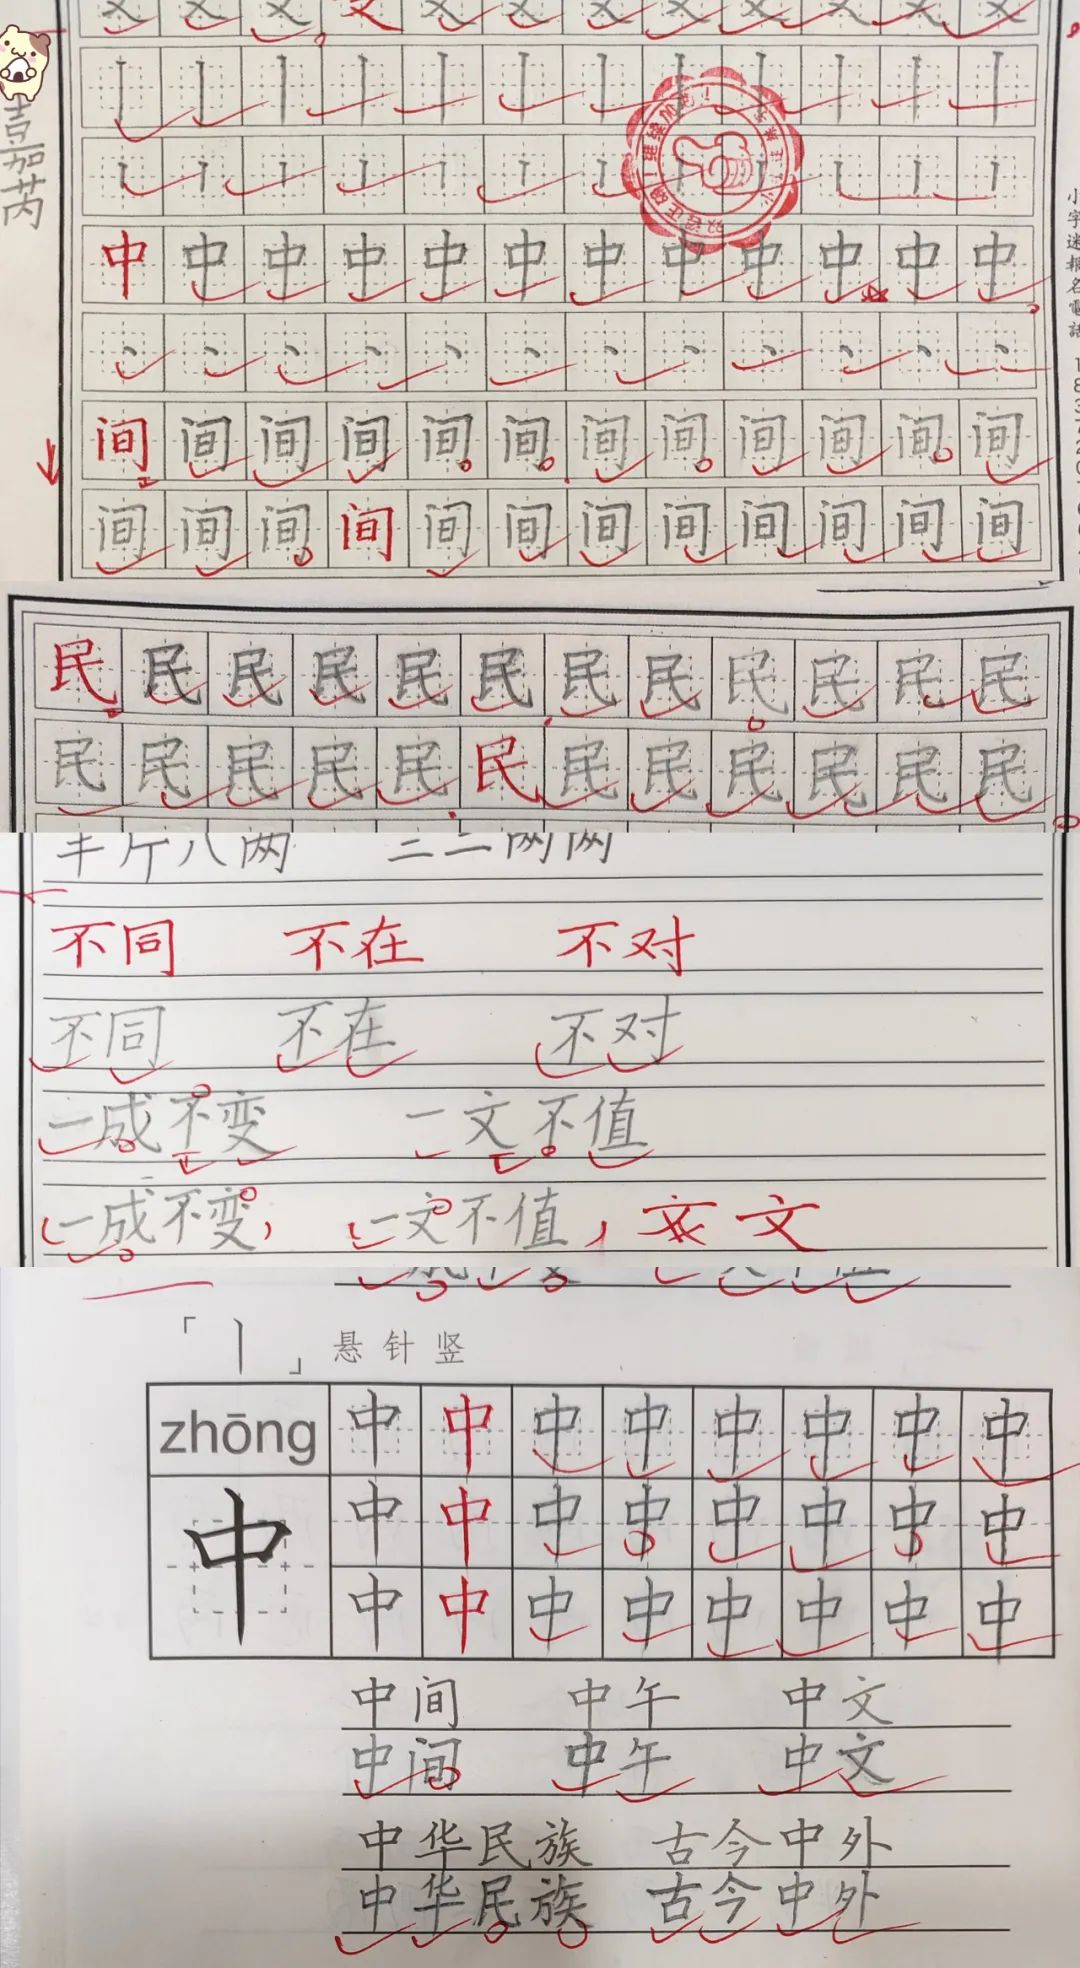 文 文 文 文 文 文 文 文 文 文 文 文
丨 丨 丨 丨 丨 丨 丨 丨 丨 丨 丨 丨
丨 丨 丨 丨 丨 丨 丨 丨 丨 丨 丨 丨
中 中 中 中 中 中 中 中 中 中 中 中
丶 丶 丶 丶 丶 丶 丶 丶 丶 丶 丶 丶
间 间 间 间 间 间 间 间 间 间 间 间
间 间 间 间 间 间 间 间 间 间 间 间
小字迷報名電話
民 民 民 民 民 民 民 民 民 民 民 民
民 民 民 民 民 民 民 民 民 民 民 民
半斤八两 三三两两
不同 不在 不对
不同 不在 不对
一成不变 一文不值
一成不变 一文不值 文 文
「丨」悬针竖
zhōng 中 中 中 中 中 中 中 中
中 中 中 中 中 中 中 中 中
中 中 中 中 中 中 中 中
中间 中午 中文
中间 中午 中文
中华民族 古今中外
中华民族 古今中外